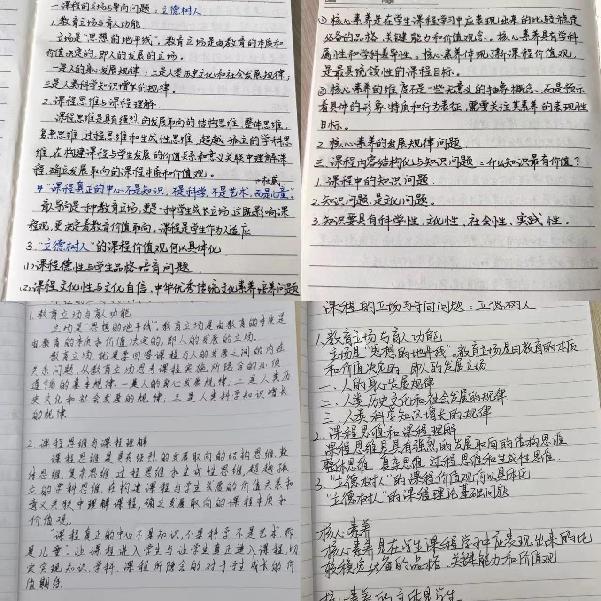 一.课程的立场与导向问题：立德树人
1.教育立场与育人功能
立场是"思想的地平线"，教育立场是由教育的本质和
价值决定的，即人的发展的立场。
一是人的身心发展规律；二是人类历史文化和社会发展规律；
三是人类科学知识增长的规律。
2.课程思维与课程理解
课程思维是具有强烈的发展取向的结构思维，整体思维，
复杂思维，过程思维和生成性思维，超越孤立的学科思
维，在构建课程与学生发展的价值关系和意义关联中理解课
程，确立发展取向的课程本质和价值观。
"课程真正的中心不是知识，不是科学，不是艺术，而是儿童"
育人导向是一种教育立场，更是一种学生成长立场，这既影响课
程观，更决定着教育价值取向，课程是学生作为人适应
3."立德树人"的课程价值观何以具体化
(1)课程德性与学生品格培育问题
(2)课程文化性与文化自信、中华优秀传统文化素养培养问题
①核心素养是在学生课程学习中应表现出来的比较稳定
必备的品格、关键能力和价值观念。核心素养具有学科
属性和学科差异性。核心素养体现新课程价值观，
是最具统领性的课程目标。
②核心素养的维度不是一些无意义的抽象概念，而是预示
着具体的形象、特质和行为表征，需要关注其素养的表现性
目标。
2.核心素养的发展规律问题
三.课程内容结构化与知识问题：什么知识最有价值？
1.课程中的知识问题
2.知识问题是文化问题。
3.知识要具有科学性、文化性、社会性、实践性。
1.教育立场与育人功能
立场是"思想的地平线"教育立场是由教育的本质是
由教育的本质和价值决定的，即人的发展的立场。
教育立场就是要回答课程与人的发展之间的内在
关系问题，从教育立场思考课程实施所蕴含的必须
遵循的基本规律，一是人的身心发展规律，二是人类历
史文化和社会发展的规律，三是人类科学知识增长
的规律
2.课程思维与课程理解
课程思维是具有强烈的发展取向的结构思维，整
体思维，复杂思维，过程思维和生成性思维，超越孤
立的学科思维，在构建课程与学生发展的价值关系和
意义关联中理解课程，确立发展取向的课程本质和
价值观。
"课程真正的中心不是知识，不是科学不是艺术，而
是儿童"让课程进入学生与让学生真正进入课程，切
实实现知识、学科、课程所隐含的对于学生成长的价
值期待
课程的立场与导向问题：立德树人
1.教育立场与育人功能
立场是"思想的地平线"教育立场是由教育的本质
和价值决定的，即人的发展立场
一、人的身心发展规律
二、人类历史文化和社会发展的规律
三、人类科学知识增长的规律
2.课程思维和课程理解
课程思维是具有强烈的发展取向的结构思维
整体思维 复杂思维 过程思维和生成性思维
3."立德树人"的课程价值观何以具体化
"立德树人"的课程理论基础问题
核心素养
核心素养是在学生课程学习中应表现出来的比
较稳定必备的品格、关键能力和价值观